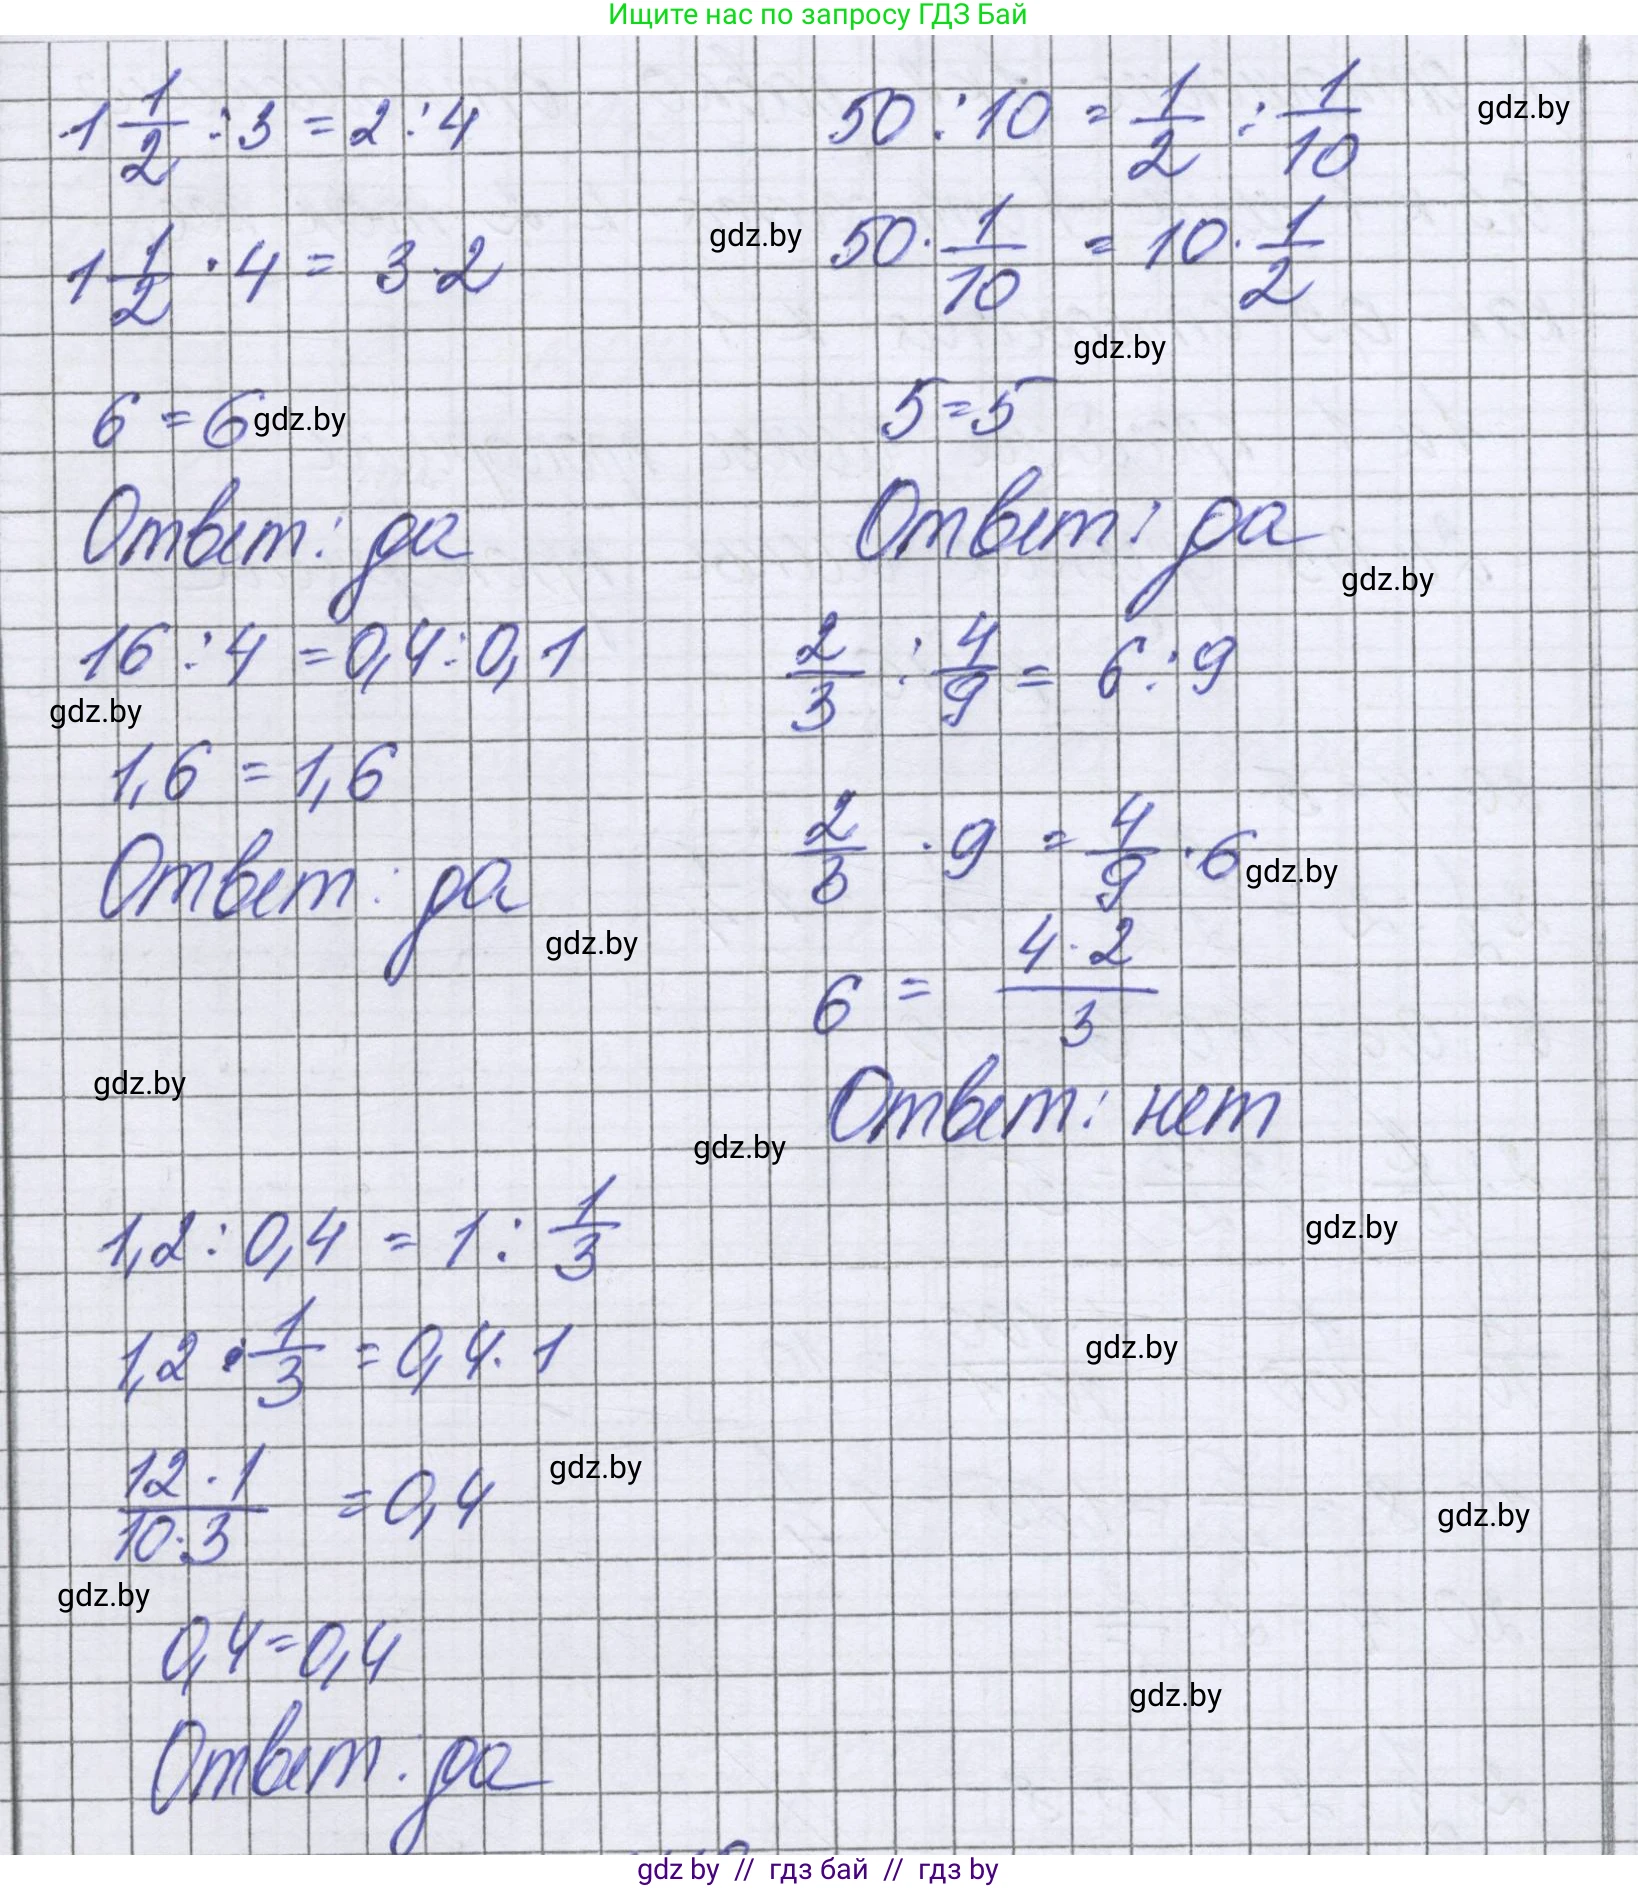 Ищите нас по запросу ГДЗ Бай
1 1/2 : 3 = 2 : 4
50 : 10 = 1/2 : 1/10
gdz.by
1 1/2 · 4 = 3 · 2
gdz.by
50 · 1/10 = 10 · 1/2
gdz.by
6 = 6
gdz.by
5 = 5
Ответ: да
Ответ: да
gdz.by
16 : 4 = 0,4 : 0,1
2/3 : 4/9 = 6 : 9
gdz.by
1,6 = 1,6
2/3 · 9 = 4/9 · 6
gdz.by
Ответ: да
gdz.by
6 = 4 · 2/3
gdz.by
Ответ: нет
gdz.by
1,2 : 0,4 = 1 : 1/3
gdz.by
1,2 · 1/3 = 0,4 · 1
gdz.by
12 · 1/10 · 3 = 0,4
gdz.by
gdz.by
gdz.by
0,4 = 0,4
gdz.by
Ответ: да
gdz by // гдз бай // гдз by